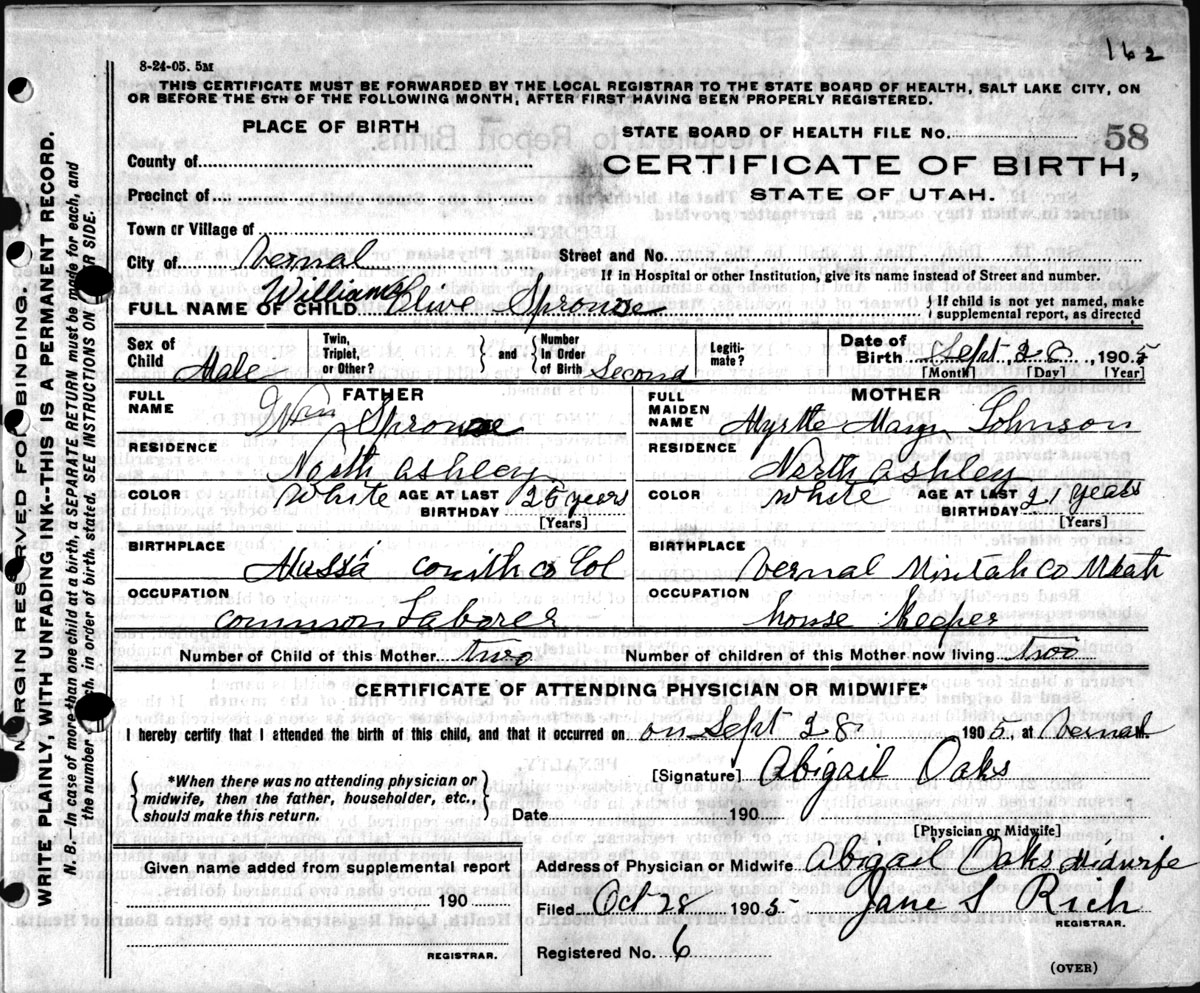 162
8-24-05. 5M
THIS CERTIFICATE MUST BE FORWARDED BY THE LOCAL REGISTRAR TO THE STATE BOARD OF HEALTH, SALT LAKE CITY, ON
OR BEFORE THE 5TH OF THE FOLLOWING MONTH, AFTER FIRST HAVING BEEN PROPERLY REGISTERED.
PLACE OF BIRTH
STATE BOARD OF HEALTH FILE No. 58
County of
CERTIFICATE OF BIRTH,
Precinct of
STATE OF UTAH.
Town or Village of
City of Vernal Street and No.
If in Hospital or other Institution, give its name instead of Street and number.
FULL NAME OF CHILD William Clive Sprouse { If child is not yet named, make
supplemental report, as directed
Sex of Child Male Twin, Triplet, or Other? { and } Number In Order of Birth Second Legiti- mate? Date of Birth Sept 28 1905
[Month] [Day] [Year]
FATHER
FULL NAME Wm Sprouse
MOTHER
FULL MAIDEN NAME Myrtle Mary Johnson
RESIDENCE North Ashley
RESIDENCE North Ashley
COLOR White AGE AT LAST BIRTHDAY years
[Years]
COLOR White AGE AT LAST BIRTHDAY 21 years
[Years]
BIRTHPLACE Col
BIRTHPLACE Vernal Uintah Co Utah
OCCUPATION common Laborer
OCCUPATION house Keeper
Number of Child of this Mother two
Number of children of this Mother now living two
CERTIFICATE OF ATTENDING PHYSICIAN OR MIDWIFE*
I hereby certify that I attended the birth of this child, and that it occurred on on Sept 28 1905, at Vernal
{ *When there was no attending physician or
midwife, then the father, householder, etc.,
should make this return. }
[Signature] Abigail Oaks
Date 190
[Physician or Midwife]
Given name added from supplemental report
190
REGISTRAR.
Address of Physician or Midwife Abigail Oaks Midwife
Filed Oct 28 1905 Jane S Rich
REGISTRAR.
Registered No. 6
(OVER)
MARGIN RESERVED FOR BINDING.
WRITE PLAINLY, WITH UNFADING INK--THIS IS A PERMANENT RECORD.
N. B.—In case of more than one child at a birth, a SEPARATE RETURN must be made for each, and
the number each, in order of birth, stated. SEE INSTRUCTIONS ON OTHER SIDE.